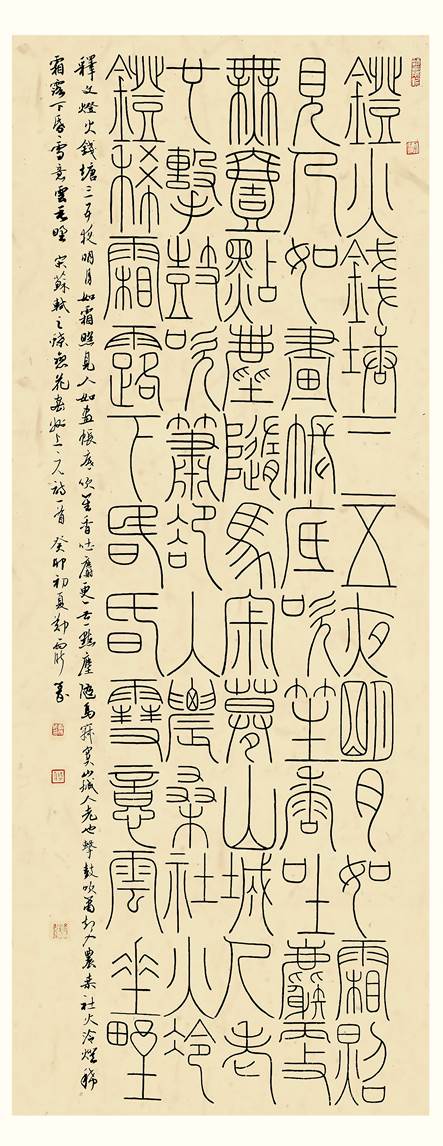 鐙火錢塘三五夜朙月如霜照
見人如畫帳底吹笙香吐麝更
無壹點塵隨馬寂寞山城人老
也擊鼓吹簫卻入農桑社火冷
鐙稀霜露下昏昏雪意雲垂野
釋文燈火錢塘三五夜明月如霜照見人如畫帳底吹笙香吐麝更無一點塵隨馬寂寞山城人老也擊鼓吹簫却入農桑社火冷燈稀
霜露下昏昏雪意雲垂野 宋蘇軾之蝶戀花密州上元詞一首 癸卯初夏鄭